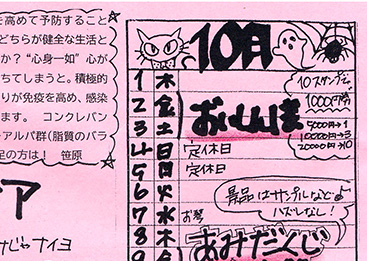 を高めて予防すること
どちらが健全な生活と
か？“心身一如”心が
ちてしまうと。積極的
りが免疫を高め、感染
ます。 コンクレバン
アルパ群(脂質のバラ
足の方は！ 笹原
ア
けじゃナイヨ
10月
1 木
2 金
3 土
4 日 定休日
5 日 定休日
6 火
7 水 お琴
8 木
9 金
10スタンプで
1000円分
5000円→1
10000円→3
20000円→10
景品はサンプルなど
ハズレなし！
あみだくじ